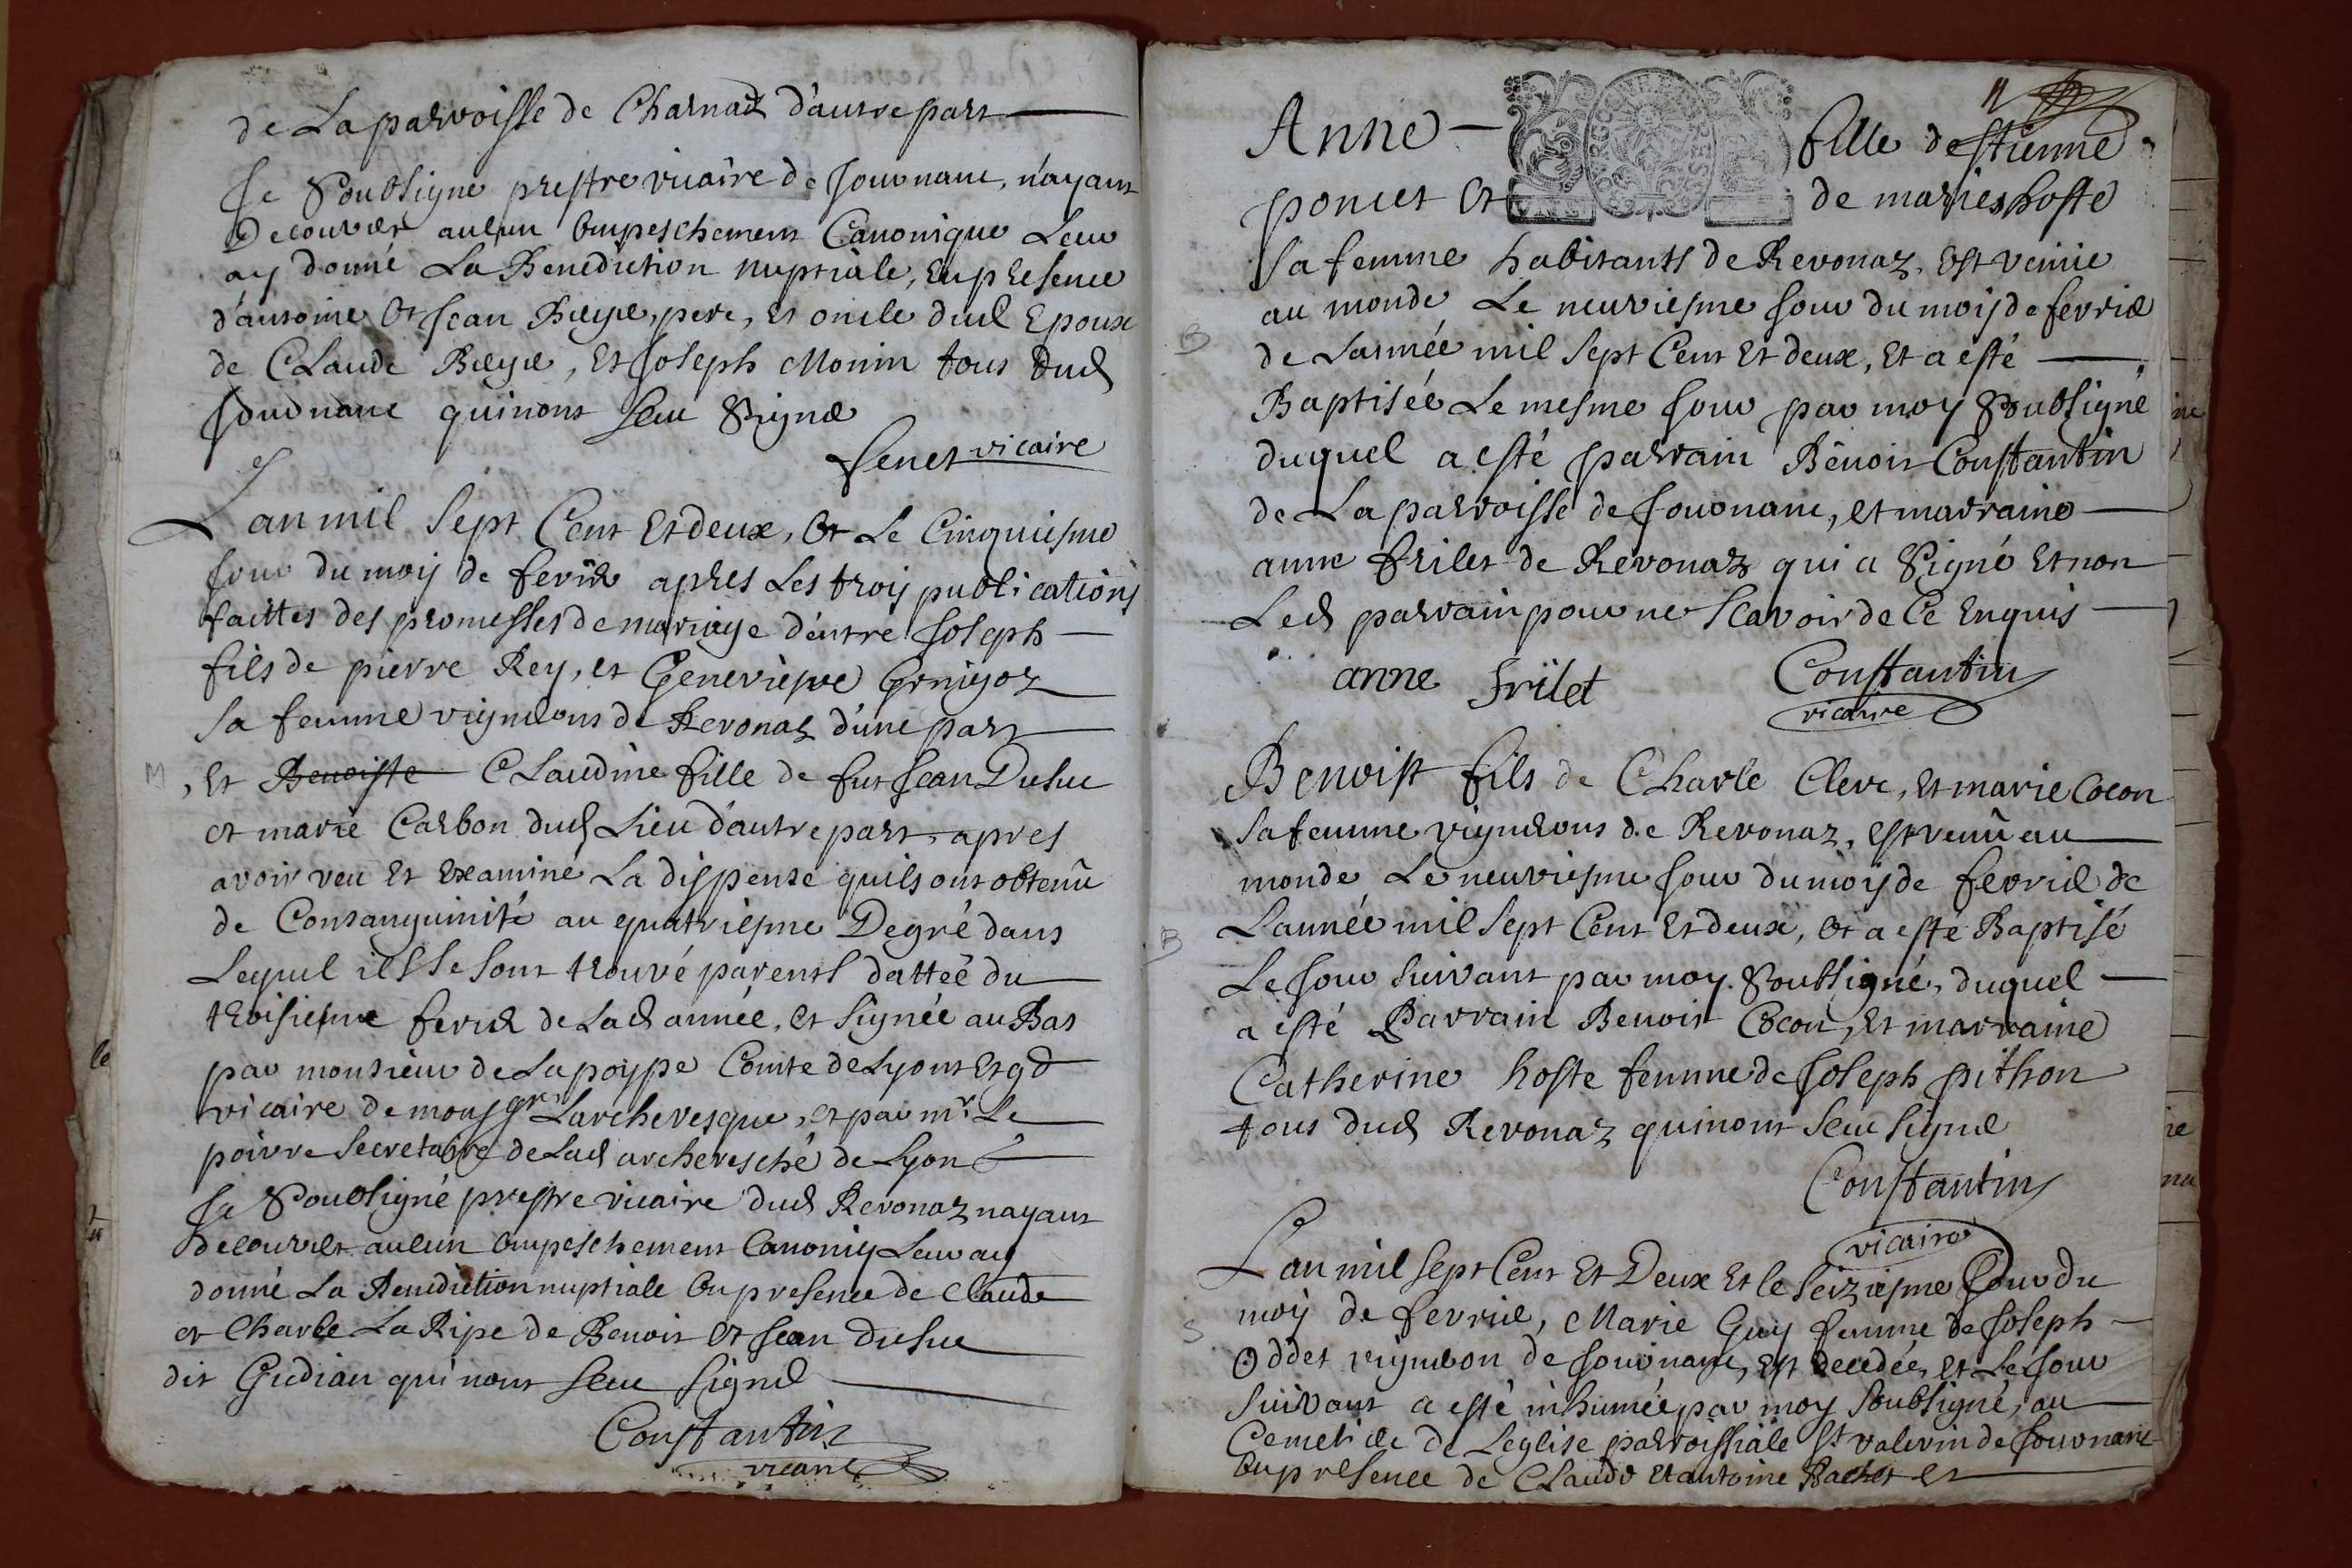 de La parroisse de Charnaz d'autre part
Je Soubsigné prestre vicaire de Journanc, n'ayant
Decouvert aucun empeschement Canonique Leur
ay donné La Benediction nuptiale, en presence
d'antoine et Jean Reyse, pere, et oncle dud Epoux
de Claude Reyse, Et Joseph Monin tous dud
Journanc qui nont Sceu Signer
Genet vicaire
Lan mil Sept Cent Et deux, et Le Cinquiesme
Jour du moy de fevrier apres Les troy publications
faittes des promesses de mariage d'entre Joseph
fils de pierre Rey, et Genevieve
Sa femme vignerons de Revonaz d'une part
M
, Et Benoiste Claudine fille de fut Jean Dusuc
et marie Carbon dud Lieu d'autre part, apres
avoir veu Et Examiné La dispense quils ont obtenu
de Consanguinité au quatriesme Degré dans
Lequel ils Se Sont trouvé parents dattée du
troisiesme fevrier de Lad année, et Signée au Bas
par monsieur de Lapoype Comte de Lyon et gd
vicaire de monsgr Larchevesque, et par mr Le
poivre Secretaire de Lad archevesché de Lyon
Je Soubsigné prestre vicaire dud Revonaz nayant
decouvert aucun empeschement Canoniq Leur ay
donné La Benediction nuptiale en presence de Claude
et Charle La Ripe de Benoit et Jean dusuc
dit Gudian qui nont Sceu Signer
Constantin
vicaire
11
Anne fille destienne
poncet et de marie hoste
Sa femme habitants de Revonaz, Est venue
au monde Le neuviesme Jour du moy de fevrier
B
de Lannée mil Sept Cent Et deux, Et a esté
Baptisée Le mesme Jour par moy Soubsigné
duquel a esté parrain Benoit Constantin
de La parroisse de Journanc, et marraine
anne frilet de Revonaz qui a Signé Et non
Led parrain pour ne Scavoir de Ce Enquis
anne frilet Constantin
vicaire
Benoist fils de Charle Clerc, Et marie Cocon
Sa femme vignerons de Revonaz, est venu au
monde Le neuviesme Jour du moy de fevrier de
B
Lannée mil Sept Cent Et deux, et a esté Baptisé
Le Jour Suivant par moy Soubsigné, duquel
a esté Parrain Benoit Cocon, Et marraine
Catherine hoste femme de Joseph pithon
tous dud Revonaz qui nont Sceu Signer
Constantin
vicaire
Lan mil Sept Cent Et Deux Et le Seiziesme Jour du
moy de fevrier, Marie Guy femme de Joseph
S
Oddet vigneron de Journanc, est decedée, et Le Jour
Suivant a esté inhumée par moy Soubsigné, au
Cemetiere de Leglise parroissiale St valerin de Journanc
En presence de Claude Et antoine Rachet et